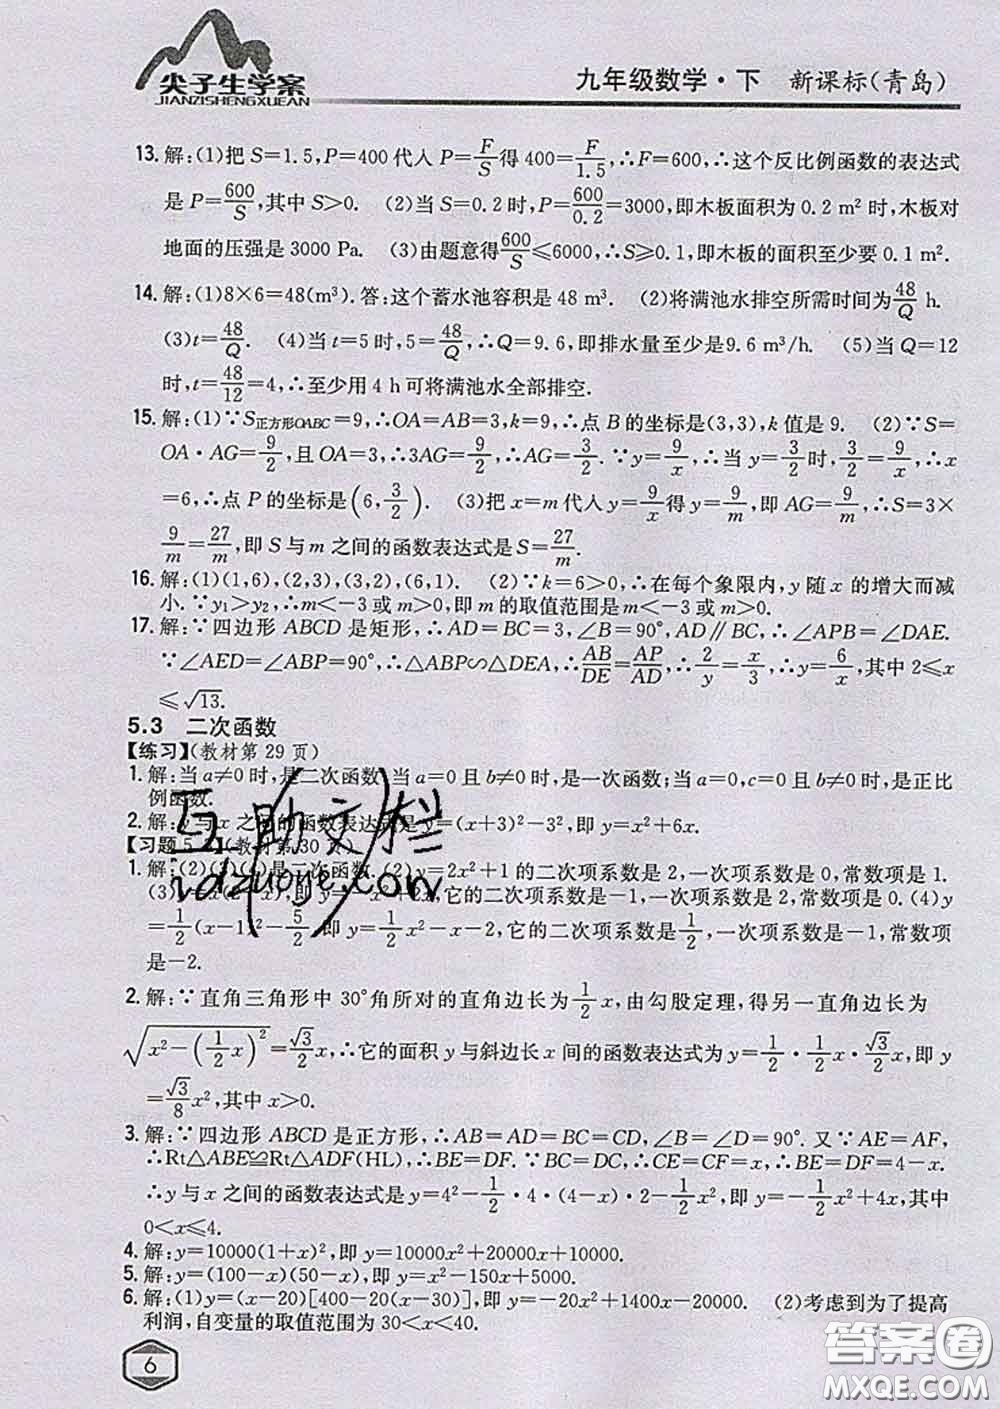 尖子生学案
JIANZISHENGXUEAN
九年级数学·下 新课标(青岛)
13.解:(1)把S=1.5,P=400代入P=F/S得400=F/1.5,∴F=600,∴这个反比例函数的表达式
是P=600/S,其中S>0. (2)当S=0.2时,P=600/0.2=3000,即木板面积为0.2 m²时,木板对
地面的压强是3000 Pa. (3)由题意得600/S≤6000,∴S≥0.1,即木板的面积至少要0.1 m².
14.解:(1)8×6=48(m³).答:这个蓄水池容积是48 m³. (2)将满池水排空所需时间为48/Q h.
(3)t=48/Q. (4)当t=5时,5=48/Q,∴Q=9.6,即排水量至少是9.6 m³/h. (5)当Q=12
时,t=48/12=4,∴至少用4 h可将满池水全部排空.
15.解:(1)∵S正方形OABC=9,∴OA=AB=3,k=9,∴点B的坐标是(3,3),k值是9. (2)∵S=
OA·AG=9/2,且OA=3,∴3AG=9/2,∴AG=3/2.∵y=9/x,∴当y=3/2时,3/2=9/x,∴x
=6,∴点P的坐标是(6,3/2). (3)把x=m代入y=9/x得y=9/m,即AG=9/m,∴S=3×
9/m=27/m,即S与m之间的函数表达式是S=27/m.
16.解:(1)(1,6),(2,3),(3,2),(6,1). (2)∵k=6>0,∴在每个象限内,y随x的增大而减
小.∵y₁>y₂,∴m<-3或m>0,即m的取值范围是m<-3或m>0.
17.解:∵四边形ABCD是矩形,∴AD=BC=3,∠B=90°,AD∥BC,∴∠APB=∠DAE.
∵∠AED=∠ABP=90°,∴△ABP∽△DEA,∴AB/DE=AP/AD,∴2/y=x/3,∴y=6/x,其中2≤x
≤√13.
5.3 二次函数
【练习】(教材第29页)
1.解:当a≠0时,是二次函数;当a=0且b≠0时,是一次函数;当a=0,c=0且b≠0时,是正比
例函数.
2.解:y与x之间的函数表达式是y=(x+3)²-3²,即y=x²+6x.
【习题5. (教材第30页)
1.解:(2)(3)(4)是二次函数.(2)y=2x²+1的二次项系数是2,一次项系数是0,常数项是1.
(3) ,即y=-x²+2x,它的二次项系数是-1,一次项系数是2,常数项是0.(4)y
=1/2(x-1)²-5/2,即y=1/2x²-x-2,它的二次项系数是1/2,一次项系数是-1,常数项
是-2.
2.解:∵直角三角形中30°角所对的直角边长为1/2x,由勾股定理,得另一直角边长为
√(x²-(1/2x)²)=√3/2x,∴它的面积y与斜边长x间的函数表达式为y=1/2·1/2x·√3/2x,即y=
√3/8x²,其中x>0.
3.解:∵四边形ABCD是正方形,∴AB=AD=BC=CD,∠B=∠D=90°.又∵AE=AF,
∴Rt△ABE≌Rt△ADF(HL),∴BE=DF.∵BC=DC,∴CE=CF=x,∴BE=DF=4-x.
∴y与x之间的函数表达式是y=4²-1/2·4·(4-x)·2-1/2x²,即y=-1/2x²+4x,其中
0<x≤4.
4.解:y=10000(1+x)²,即y=10000x²+20000x+10000.
5.解:y=(100-x)(50-x),即y=x²-150x+5000.
6.解:(1)y=(x-20)[400-20(x-30)],即y=-20x²+1400x-20000. (2)考虑到为了提高
利润,自变量的取值范围为30<x<40.
6
互助文栏
idzuoye.com
答案圈
MXQE.COM